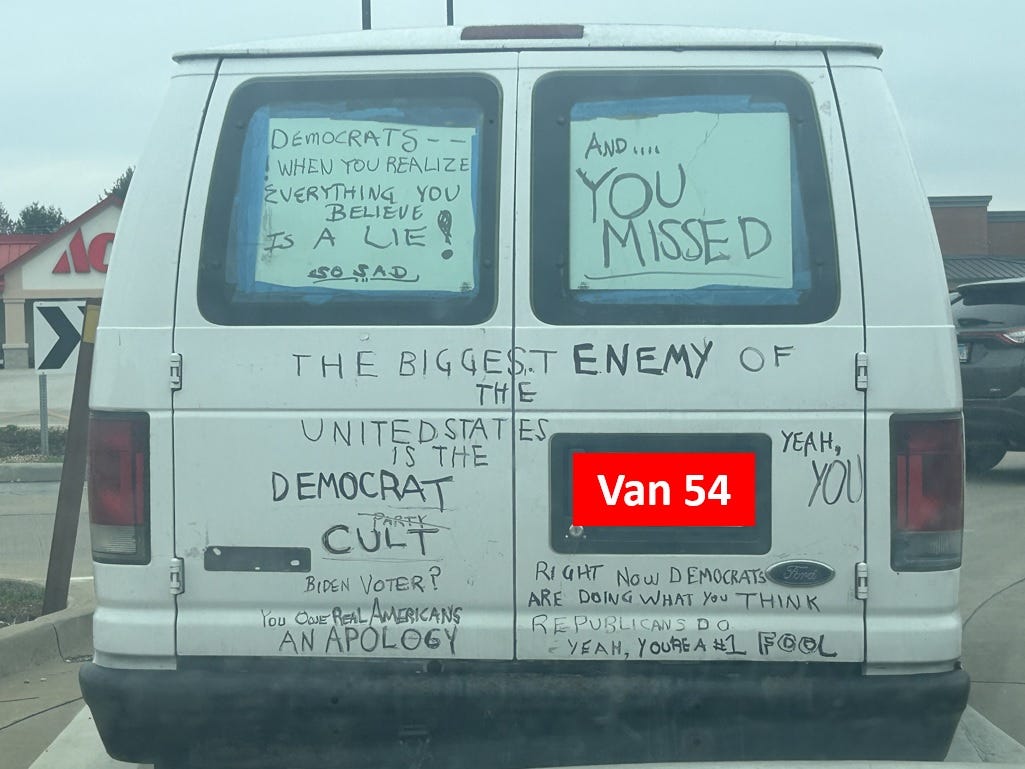 DEMOCRATS--
! WHEN YOU REALIZE
EVERYTHING YOU
BELIEVE
IS A LIE!
SO SAD
AND....
YOU
MISSED
AC
THE BIGGEST ENEMY OF
THE
UNITED STATES
IS THE
DEMOCRAT
PARTY
CULT
BIDEN VOTER?
YOU OWE REAL AMERICANS
AN APOLOGY
YEAH,
YOU
Van 54
Ford
RIGHT NOW DEMOCRATS
ARE DOING WHAT YOU THINK
REPUBLICANS DO
- YEAH, YOURE A #1 FOOL